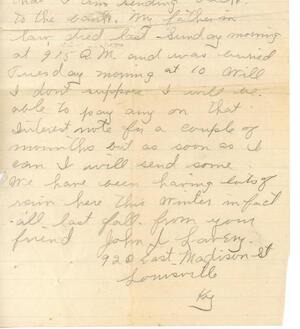 that I am sending back
to the bank. My father in
law died last Sunday morning
at 9:15 A.M. and was buried
Tuesday morning at 10 Will
I dont suppose I will be
able to pay any on that
Interest note for a couple of
monnths but as soon as I
can I will send some
We have been having lots of
rain here this Winter infact
all last fall. from your
friend John L Lavery.
920 East Madison St
Louisville
Ky